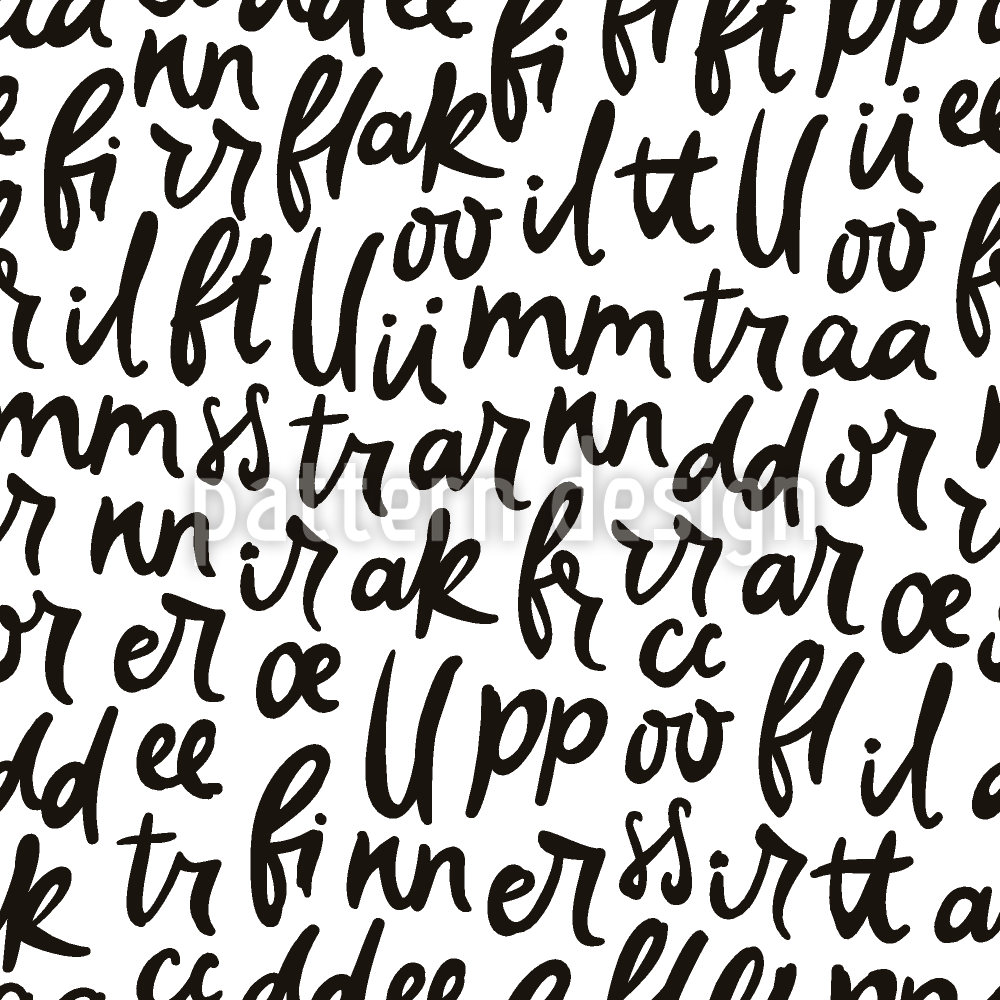 dd ee fi fl ft pp
nn
fi rr fl ak il tt ll ii ee
oo oo
r il ft ll ii mm tr aa
mm ss tr ar nn dd or
pattern design
r nn ir ak fr rr ar œ
or er œ cc
ll pp oo fl il
dd ee
k tr fi nn er ss ir tt a
cc dd ee